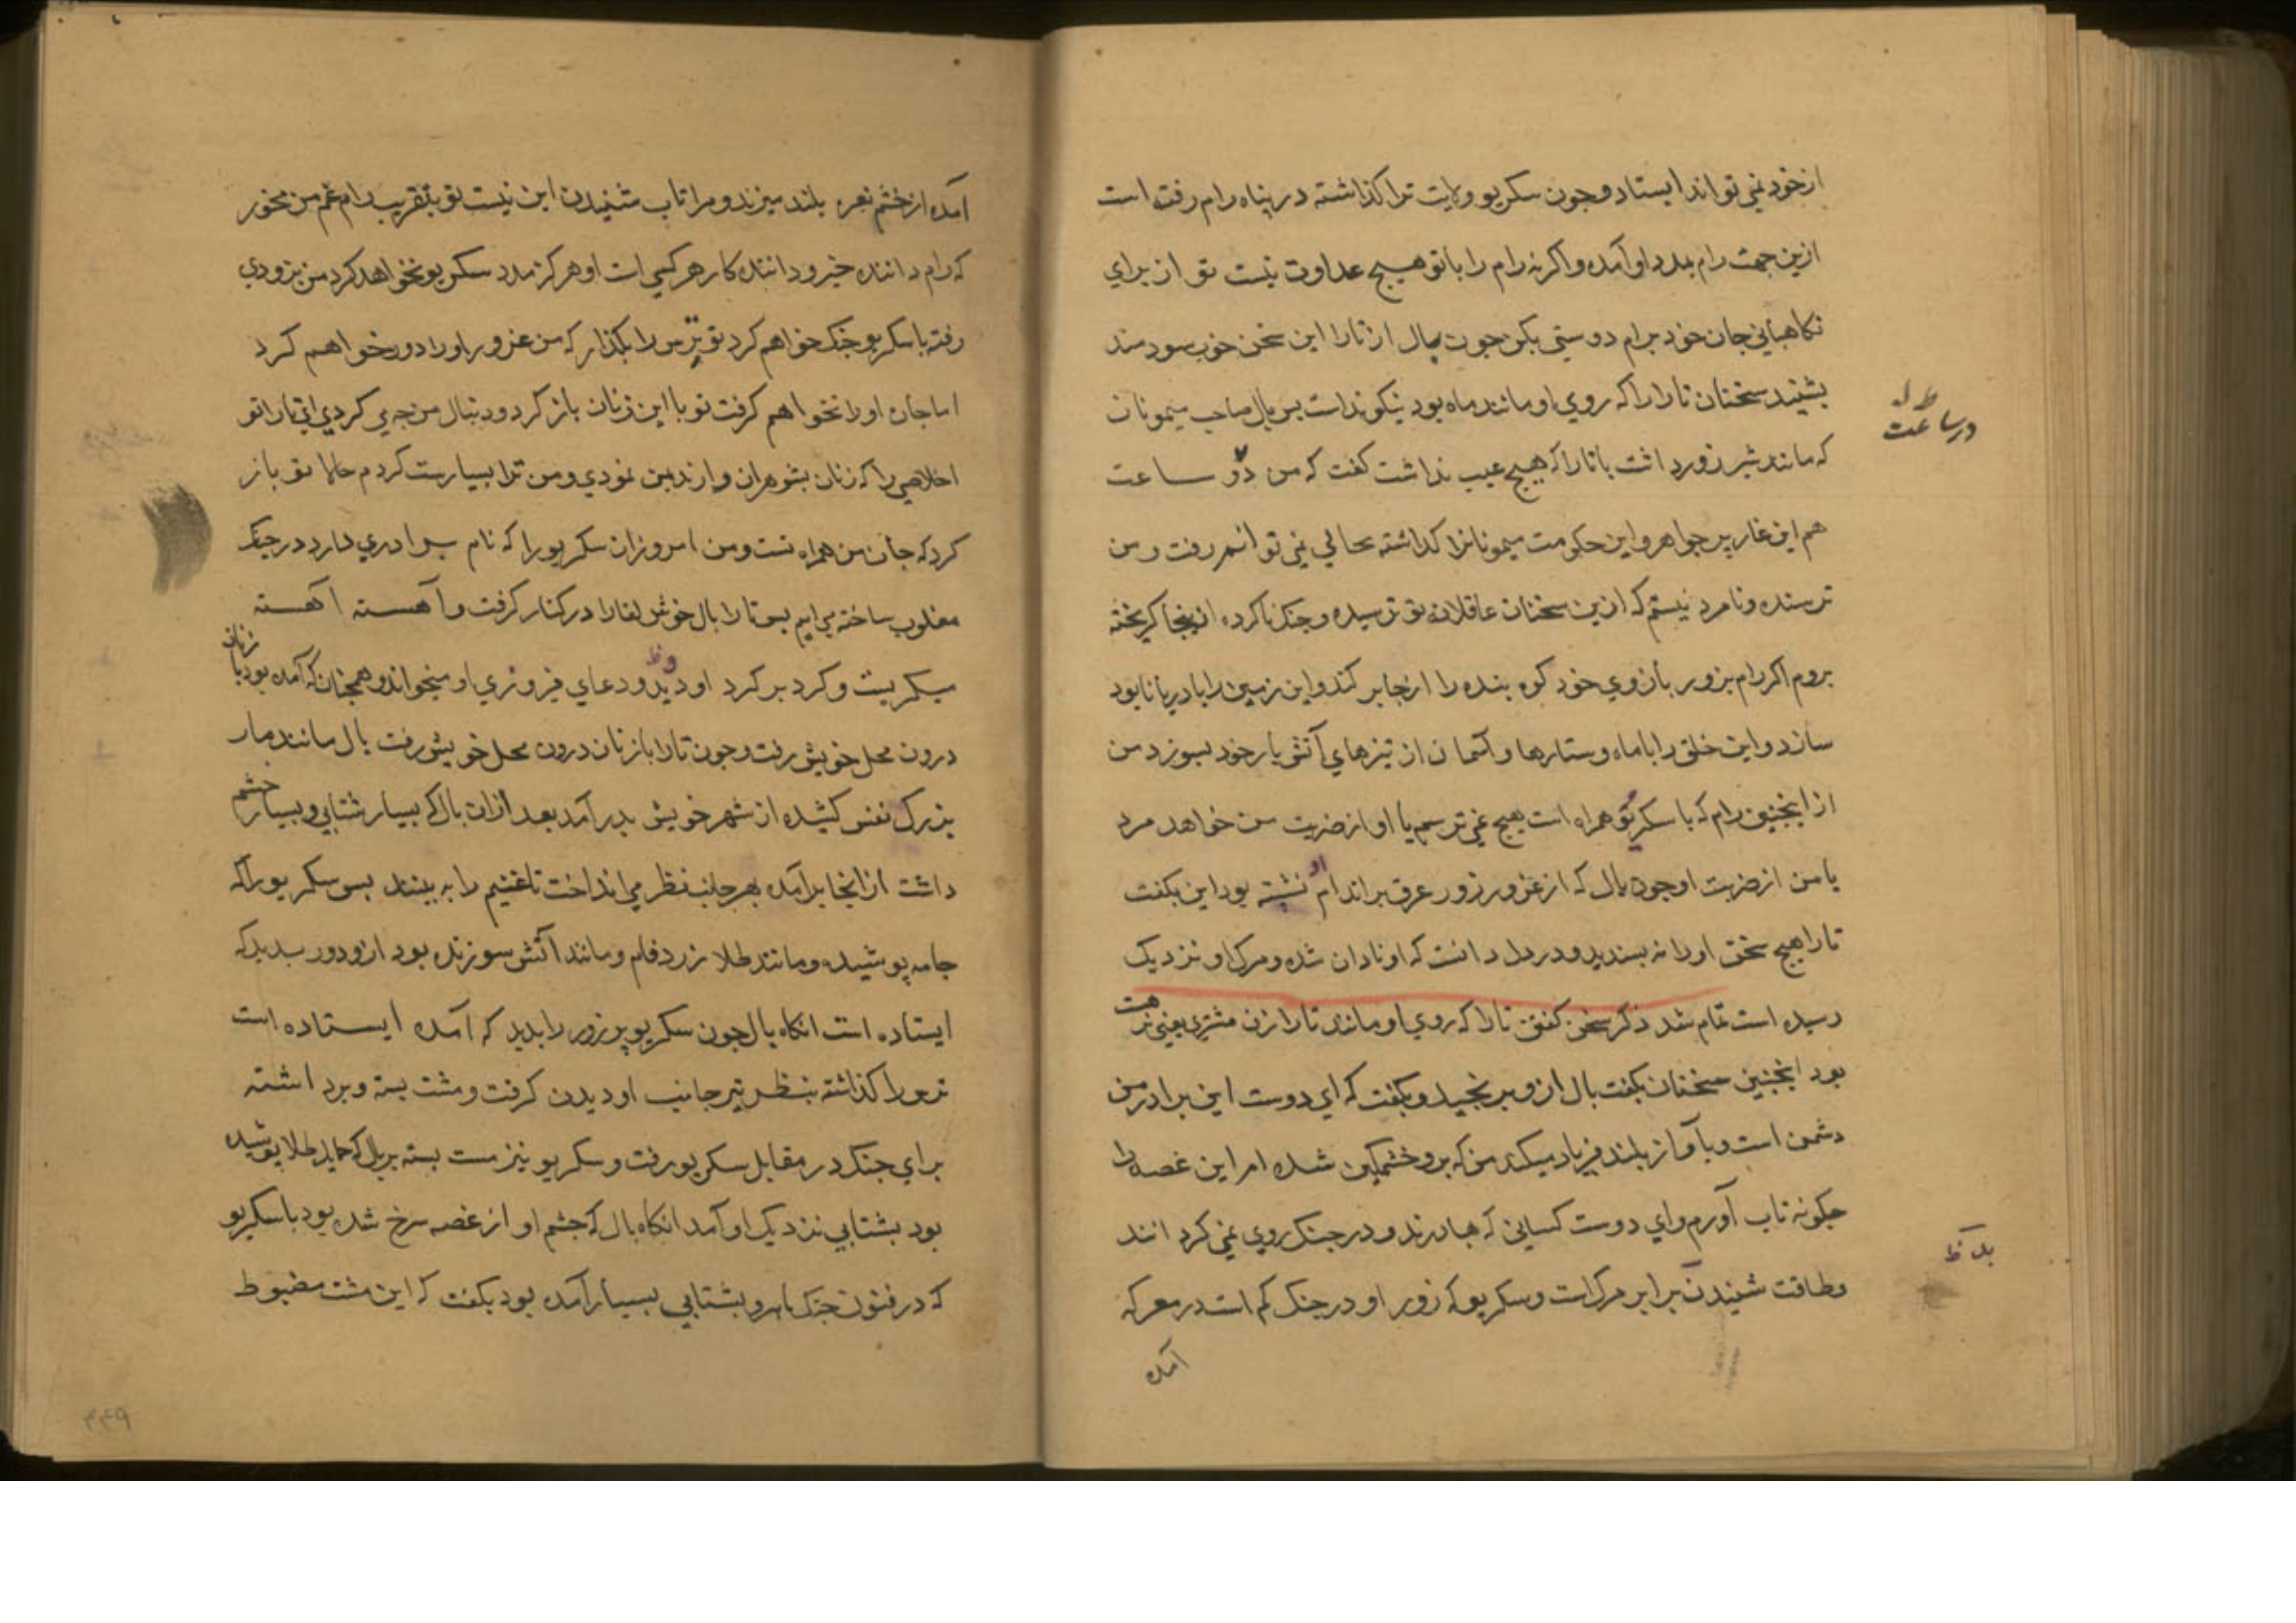 از خود نمی تواند ایستاد وجون سکریو ولایت ترا کذاشته در پناه رام رفته است
ازین جهت رام بمدد او آمده واکرنه رام را با تو هیچ عداوت نیست تو از برای
نکاهبانی جان خود برام دوستی بکن جون بال از تارا این سخن خوب سودمند
بشنید سخنان تارا را که روی او مانند ماه بود نیکو نداست بس بال صاحب میمونان
که مانند شیر زور داشت با تارا که هیچ عیب نداشت کفت که من دو ساعت
هم این غار پر جواهر و این حکومت میمونانرا کذاشته بحالی نمی توانم رفت ومن
ترسنده ونامرد نیستم که ازین سخنان عاقلانه تو ترسیده وجنک ناکرده ازینجا کریخته
بروم اکر رام بزور بازوی خود کوه بنده را از جا بر کند واین زمین را با دریا نابود
سازد واین خلق را با ماه وستارها وآسمان از تیرهای آتش بار خود بسوزد من
از اینجنین رام که با سکریو همراه است هیچ نمی ترسم یا او از ضربت من خواهد مرد
یا من از ضربت او جون بال که از غرور زور عرق بر اندام او نشسته بود این بکفت
تارا هیچ سخن او را نه بسندید ودر دل دانست که او نادان شده ومرک او نزدیک
رسیده است تمام شد ذکر سخن کفتن تارا که روی او مانند تارا زن مشتری یعنی
بود اینجنین سخنان بکفت بال ازو برنجید وبکفت که ای دوست این برادر من
دشمن است وبآواز بلند فریاد میکند من که برو خشمکین شده ام این غصه را
جکونه تاب آورم وای دوست کسانی که بهادرند ودر جنک روی نمی کردانند
وطاقت شنیدن برابر مرک است وسکریو که زور او در جنک کم است در معرکه
آمده
در ساعت
بد ظ
آمده از خشم نعره بلند میزند ومرا تاب شنیدن این نیست تو بتقریب رام غم من مخور
که رام داننده خیر وداننده کار هر کسی است او هرکز مدد سکریو نخواهد کرد من بزودی
رفته با سکریو جنک خواهم کرد تو ترس را بکذار که من غرور او را دور خواهم کرد
اما جان او را نخواهم کرفت تو با این زنان باز کرد ودنبال من جه می کردی ای تارا تو
اخلاصی را که زنان بشوهران دارند بمن نمودی ومن ترا بسیار کردم حالا تو باز
کرد که جان من همراه تست ومن امروز ان سکریو را که نام برادری دارد در جنک
مغلوب ساخته می ایم بس تارا بال خوش لقا را در کنار کرفت وآهسته آهسته
میکریست وکرد بر کرد او ودعای فیروزی او میخواند وهمجنان که آمده بود با زنان
درون محل خویش رفت وجون تارا با زنان درون محل خویش رفت بال مانند مار
بزرک نفس کشیده از شهر خویش بدر آمد بعد ازان بال که بسیار شتابی وبسیار خشم
داشت از انجا برآمده بهر جانب نظر می انداخت تا غنیم را به بیند بس سکریو را که
جامه پوشیده ومانند طلا زرد فام ومانند آتش سوزنده بود از دور بدید که
ایستاده است انکاه بال جون سکریو پر زور را بدید که آمده ایستاده است
را کذاشته بنظر تیز جانب او دیدن کرفت ومشت بسته وبرداشته
برای جنک در مقابل سکریو رفت وسکریو نیز مشت بسته بر بال که طلا پوشیده
بود بشتابی نزدیک او آمد انکاه بال که جشم او از غصه سرخ شده بود با سکریو
که در فنون جنک ماهر وبشتابی بسیار آمده بود بکفت که این مشت مضبوط
۳۴۹